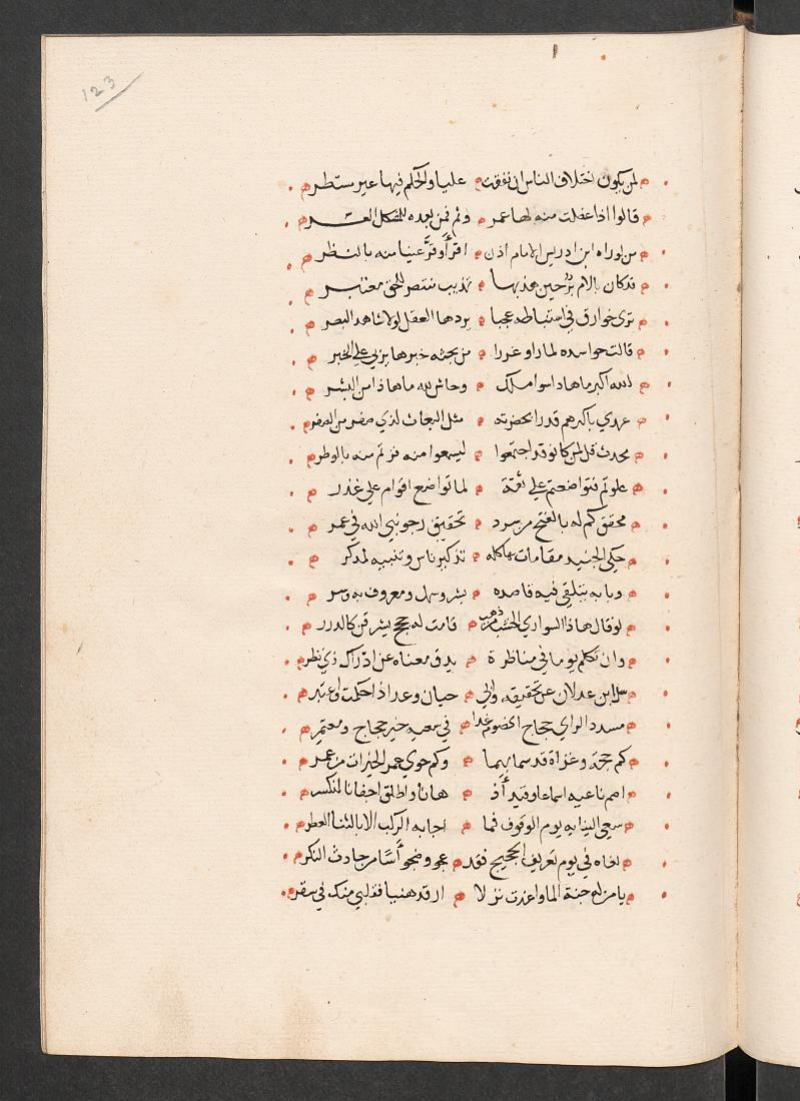 123
لمن يكون اختلاف الناس ان تفقت عليا والحكم فيها غير مستطر
قالوا اذا عضلت منه لها عمر ونم فمن بعده للمشكل العسر
من لو راه ابن ادريس الامام اذن اقر أو قر عينا منه بالنظر
قد كان بالام بر حين هذبها تهذيب منتصر للحق معتبر
ترى خوارق في استنباطه عجبا يردها العقل لولا شاهد البصر
قالت حواسده لما راو غررا من بحثه خبرها يربي على الخبر
لله اكبر ما هاذا سوا ملك وحاش لله ما هاذا من البشر
عهدي باكبرهم قدرا بحضرته مثل البغاث لذي صقر من الصقر
محدث قل لمن كانو قد اجتمعوا ليسمعوا منه فزتم منه بالوطر
علوتم فتواضعتم على ثقة لما تواضع اقوام على غرر
محقق كم له بالفتح من سرد تحقيق رجو نبي الله في عمر
حكى الجنيد مقامات تذكير ناس وتنبيه لمدكر
وبابه يتلقى فيه قاصده بشر وسهل ومعروف به وسر
لو قال هاذا السواري الخشب من ذهب قامت له حجج يشرقن كالدرر
وان تكلم يوما في مناظرة يدق معناه عن ادراك ذي نظر
سل ابن عدلان عن تحقيقه وابي حيان وعد اذا حكمت واعتبر
مسدد الراي حجاج الخصوم غدا في سعيه خير حجاج ومعتمر
كم حجة وغزاة قد سما بهما وكم حوى عمر الخيرات من عمر
اصم ناعيه اسماعا وقيد أذهانا واطلق اجفانا لمنكسر
سعى الينا به يوم الوقوف فما اجابه الركب الا بالثنا العطر
نعاه في يوم تعريف الحجيج فقد عجو وضجو أسا من حادث النكر
يا من له جنة الماوا غدت نزلا ارقد هنيا فقلبي منك في سقر